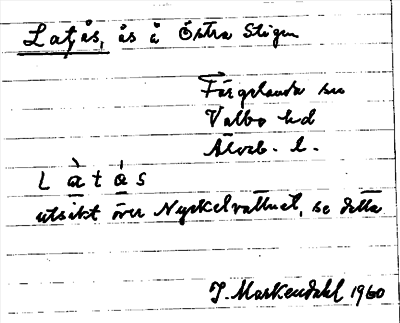 Latås, ås å Östra Stigen
Färgelanda sn
Valbo hd
Älvsb. l.
L à t å s
utsikt över Nyckelvattnet, se detta
J. Markendahl 1960